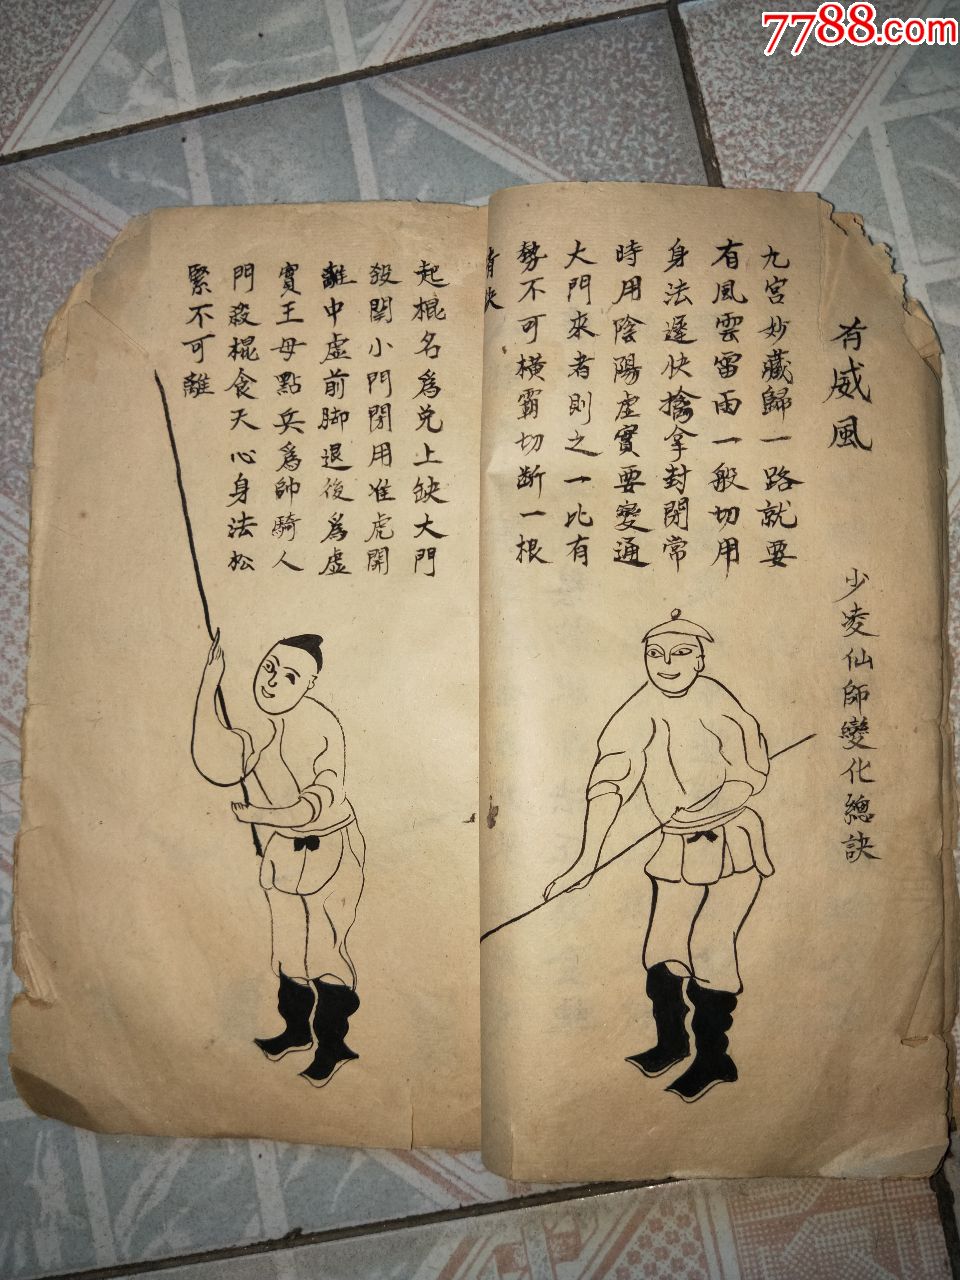 7788.com
有威風
少凌仙師變化總訣
九宮妙藏歸一路就要
有風雲雷雨一般切用
身法遲快擒拿封閉常
時用陰陽虛實要變通
大門來者則之一比有
勢不可橫霸切斷一根
起棍名為兌上缺大門
殺開小門閉用准虎開
離中虛前脚退後為虛
實王母點兵為帥騎人
門殺棍食天心身法松
緊不可離